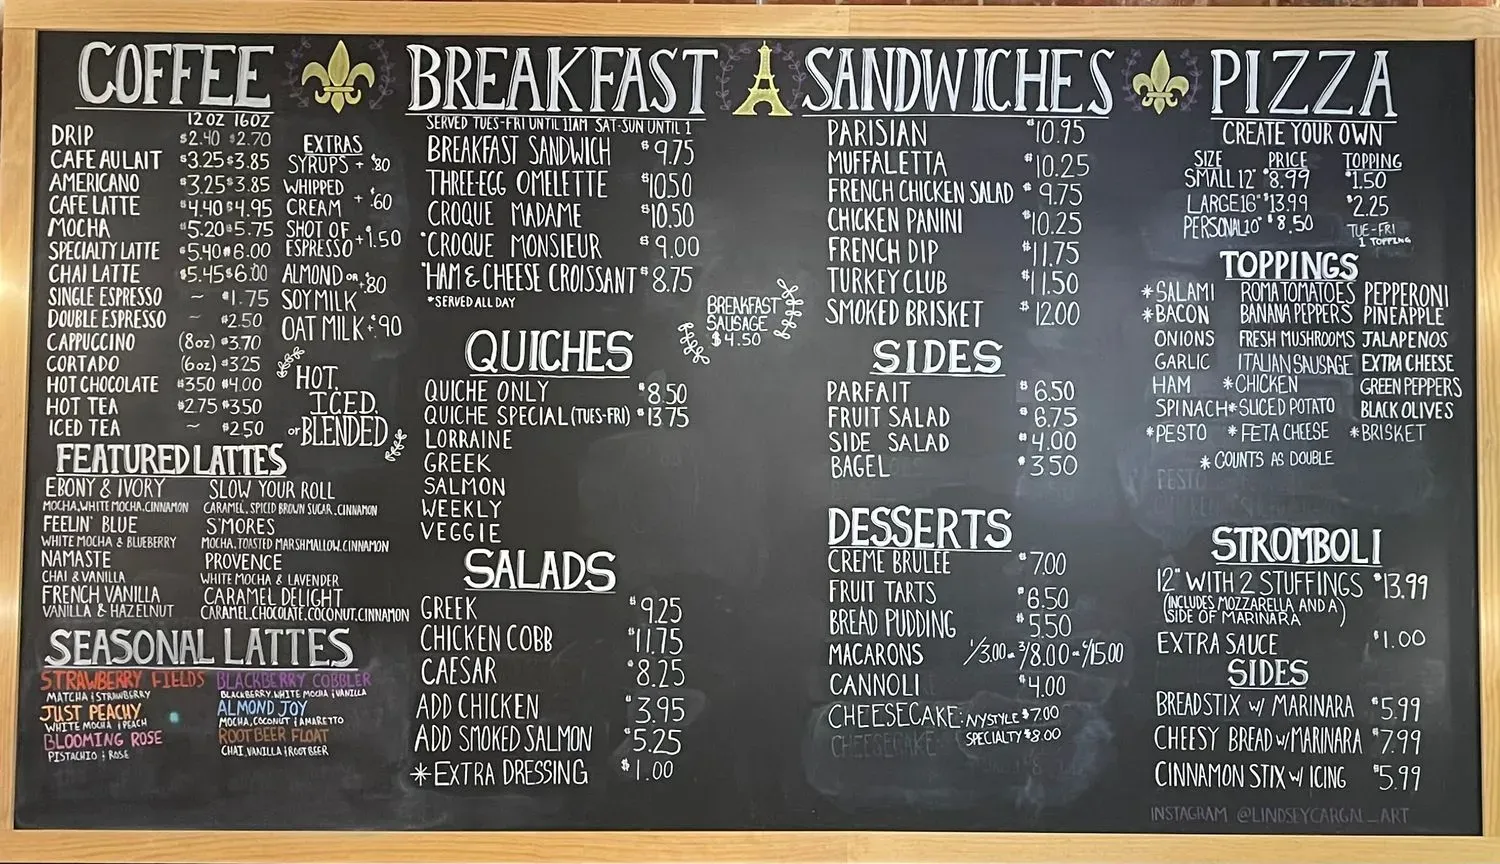 COFFEE
12 OZ 16 OZ
DRIP $2.40 $2.70
CAFE AU LAIT $3.25 $3.85
AMERICANO $3.25 $3.85
CAFE LATTE $4.40 $4.95
MOCHA $5.20 $5.75
SPECIALTY LATTE $5.40 $6.00
CHAI LATTE $5.45 $6.00
SINGLE ESPRESSO ~ $1.75
DOUBLE ESPRESSO ~ $2.50
CAPPUCCINO (8oz) $3.70
CORTADO (6oz) $3.25
HOT CHOCOLATE $3.50 $4.00
HOT TEA $2.75 $3.50
ICED TEA ~ $2.50
EXTRAS
SYRUPS + $.80
WHIPPED
CREAM + $.60
SHOT OF
ESPRESSO + $1.50
ALMOND OR + $.80
SOY MILK
OAT MILK + $.90
HOT,
ICED,
or BLENDED
FEATURED LATTES
EBONY & IVORY
MOCHA, WHITE MOCHA, CINNAMON
FEELIN' BLUE
WHITE MOCHA & BLUEBERRY
NAMASTE
CHAI & VANILLA
FRENCH VANILLA
VANILLA & HAZELNUT
SLOW YOUR ROLL
CARAMEL, SPICED BROWN SUGAR, CINNAMON
S'MORES
MOCHA, TOASTED MARSHMALLOW, CINNAMON
PROVENCE
WHITE MOCHA & LAVENDER
CARAMEL DELIGHT
CARAMEL, CHOCOLATE, COCONUT, CINNAMON
SEASONAL LATTES
STRAWBERRY FIELDS
MATCHA & STRAWBERRY
JUST PEACHY
WHITE MOCHA & PEACH
BLOOMING ROSE
PISTACHIO & ROSE
BLACKBERRY COBBLER
BLACKBERRY, WHITE MOCHA & VANILLA
ALMOND JOY
MOCHA, COCONUT & AMARETTO
ROOT BEER FLOAT
CHAI, VANILLA & ROOT BEER
BREAKFAST
SERVED TUES-FRI UNTIL 11AM SAT-SUN UNTIL 1
BREAKFAST SANDWICH $9.75
THREE-EGG OMELETTE $10.50
CROQUE MADAME $10.50
*CROQUE MONSIEUR $9.00
*HAM & CHEESE CROISSANT $8.75
*SERVED ALL DAY
BREAKFAST
SAUSAGE
$4.50
QUICHES
QUICHE ONLY $8.50
QUICHE SPECIAL (TUES-FRI) $13.75
LORRAINE
GREEK
SALMON
WEEKLY
VEGGIE
SALADS
GREEK $9.25
CHICKEN COBB $11.75
CAESAR $8.25
ADD CHICKEN $3.95
ADD SMOKED SALMON $5.25
*EXTRA DRESSING $1.00
SANDWICHES
PARISIAN $10.95
MUFFALETTA $10.25
FRENCH CHICKEN SALAD $9.75
CHICKEN PANINI $10.25
FRENCH DIP $11.75
TURKEY CLUB $11.50
SMOKED BRISKET $12.00
SIDES
PARFAIT $6.50
FRUIT SALAD $6.75
SIDE SALAD $4.00
BAGEL $3.50
DESSERTS
CREME BRULEE $7.00
FRUIT TARTS $6.50
BREAD PUDDING $5.50
MACARONS 1/3.00 - 3/8.00 - 6/15.00
CANNOLI $4.00
CHEESECAKE: NY STYLE $7.00
SPECIALTY $8.00
CHEESECAKE
PIZZA
CREATE YOUR OWN
SIZE PRICE TOPPING
SMALL 12" $8.99 $1.50
LARGE 16" $13.99 $2.25
PERSONAL 10" $8.50 TUE-FRI
1 TOPPING
TOPPINGS
*SALAMI ROMA TOMATOES PEPPERONI
*BACON BANANA PEPPERS PINEAPPLE
ONIONS FRESH MUSHROOMS JALAPENOS
GARLIC ITALIAN SAUSAGE EXTRA CHEESE
HAM *CHICKEN GREEN PEPPERS
SPINACH *SLICED POTATO BLACK OLIVES
*PESTO *FETA CHEESE *BRISKET
*COUNTS AS DOUBLE
PESTO
STROMBOLI
12" WITH 2 STUFFINGS $13.99
(INCLUDES MOZZARELLA AND A
SIDE OF MARINARA)
EXTRA SAUCE $1.00
SIDES
BREADSTIX W/ MARINARA $5.99
CHEESY BREAD W/ MARINARA $7.99
CINNAMON STIX W/ ICING $5.99
INSTAGRAM @LINDSEYCARGAL_ART